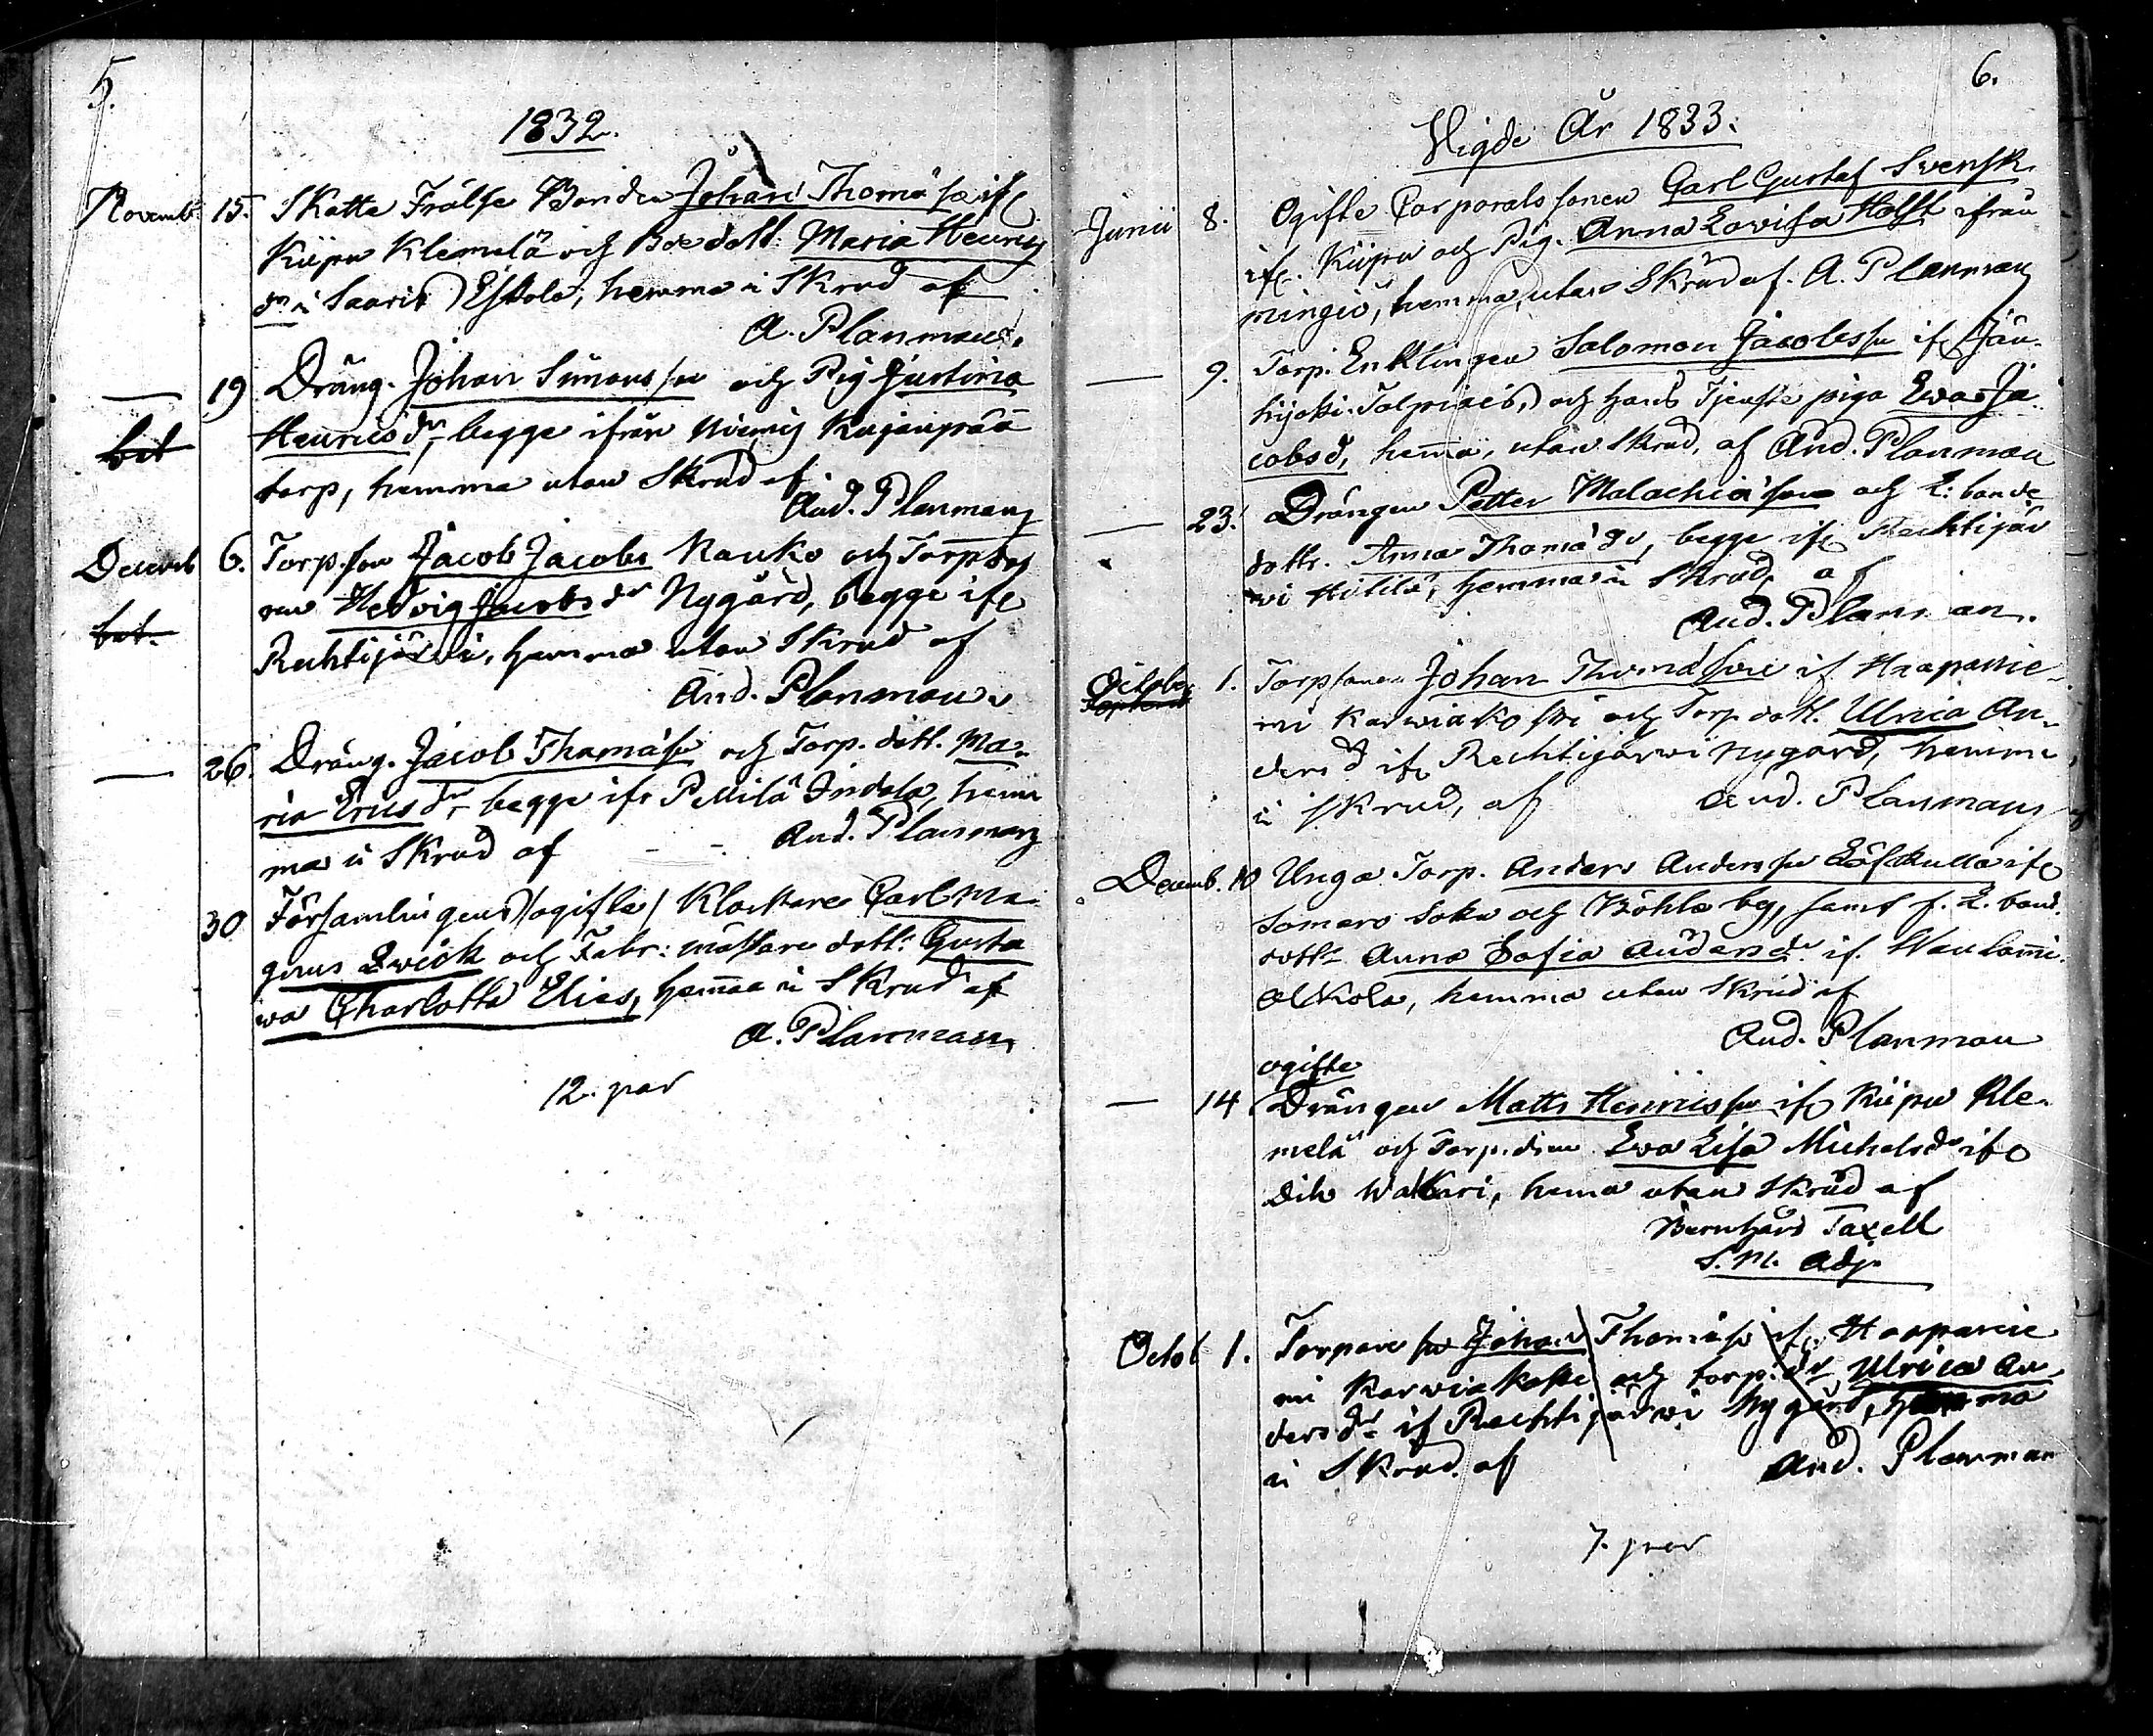 5.
1832.
Novemb. 15. Skatte Frälse Bonden Johan Thomæ sn ifr
Kiipu Klemelä och Bde dott: Maria Henrics
dr i Saaris Eskola, hemma i Skrud af
A. Planman.
— 19 Dräng. Johan Simonsson och Pig Justina
Henricsdr, begge ifrån
torp, hemma utan Skrud af
And. Planman
Decemb 6. Torp. son Jacob Jacobs Kauko och Torp
Hedvig Jacobs dr Nygård, begge ifr
Rechtijärvi, hemma utan Skrud af
And. Planman.
— 26. Dräng. Jacob Thomæ sn och Torp. dott. Ma-
ria Erics dr begge ifr Penilä Indola, hem
ma i Skrud af — — And. Planman
30 Församlingens (ogifte) Klockare Carl Ma-
gnus Qvick och Fabr: mästare dott: Gusta
va Charlotta Elies, hemma i Skrud af
A. Planman
12. par
6.
Vigde År 1833.
Junii 8. Ogifte Corporals sonen Carl Gustaf Svensk
ifr. Kiipu och Pig. Anna Lovisa Holst ifrån
mingiö, hemma, utan Skrud af. A. Planman
— 9. Torp. Enklingen Salomon Jacobsson ifr Jän-
hijoki och hans Tjenste piga Eva Ja-
cobsd, hemma, utan Skrud, af And. Planman
— 23. Drängen Petter Malachiæ son och L: bonde
dottr. Anna Thomæ dr, begge ifr Rechtijär
vi hemma i Skrud, af
And. Planman.
October 1. Torpsonen Johan Thomæ son if Haapanie-
mi Karviakoski och Torp dott. Ulrica An-
ders d ifr Rechtijärvi Nygård, hemma
i Skrud, af And. Planman
Decemb. 10 Unga Torp. Anders Anders sn Löfskulla ifr
Somero Sokn och Böhle by, samt f. L. bond.
dottr Anna Sofia Anders dr if.
Olkola, hemma utan Skrud af
And. Planman
ogifte
— 14 Drängen Matts Henrics sn ifr Kiipu Kle-
melä och Torp. Eva Lisa Michels dr ifr
hemma utan Skrud af
Bernhard Taxell
S. M. Adj.
Octob 1. Torpare sn Johan Thomæ sn ifr. Haapanie
mi Karviakoski och torp: dr Ulrica An-
ders dr if Rechtijärvi Nygård, hemma
i Skrud. af And. Planman
7. par